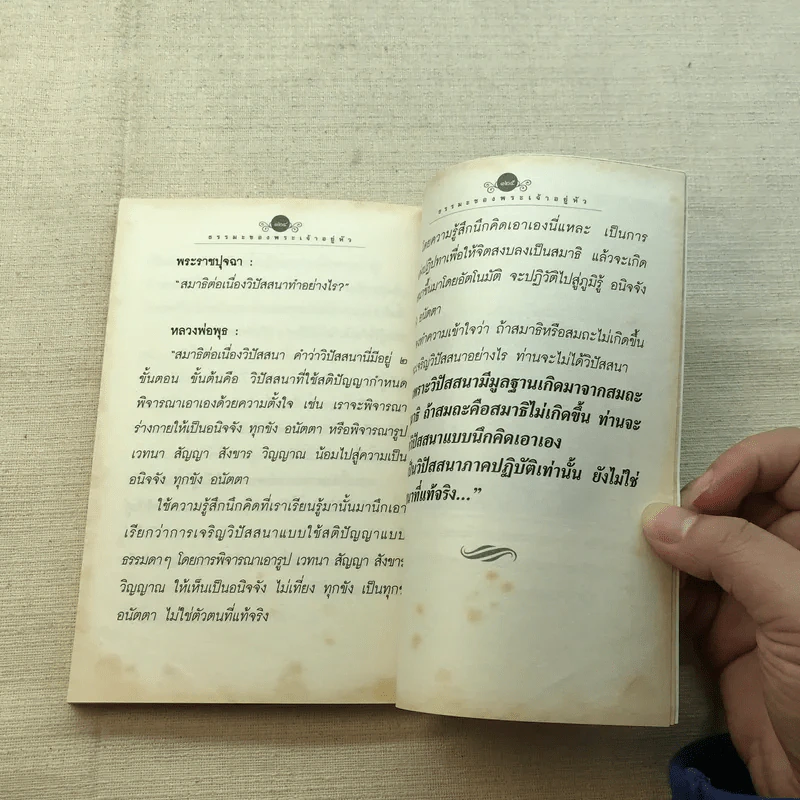 ๑๒๔
ธรรมะของพระเจ้าอยู่หัว
พระราชปุจฉา :
"สมาธิต่อเนื่องวิปัสสนาทำอย่างไร?"
หลวงพ่อพุธ :
"สมาธิต่อเนื่องวิปัสสนา คำว่าวิปัสสนานี่มีอยู่ ๒
ขั้นตอน ขั้นต้นคือ วิปัสสนาที่ใช้สติปัญญากำหนด
พิจารณาเอาเองด้วยความตั้งใจ เช่น เราจะพิจารณา
ร่างกายให้เป็นอนิจจัง ทุกขัง อนัตตา หรือพิจารณารูป
เวทนา สัญญา สังขาร วิญญาณ น้อมไปสู่ความเป็น
อนิจจัง ทุกขัง อนัตตา
ใช้ความรู้สึกนึกคิดที่เราเรียนรู้มานั้นมานึกเอา
เรียกว่าการเจริญวิปัสสนาแบบใช้สติปัญญาแบบ
ธรรมดาๆ โดยการพิจารณาเอารูป เวทนา สัญญา สังขาร
วิญญาณ ให้เห็นเป็นอนิจจัง ไม่เที่ยง ทุกขัง เป็นทุก
อนัตตา ไม่ใช่ตัวตนที่แท้จริง
๑๒๕
ธรรมะของพระเจ้าอยู่หัว
โดยความรู้สึกนึกคิดเอาเองนี่แหละ เป็นการ
ปฏิปทาเพื่อให้จิตสงบลงเป็นสมาธิ แล้วจะเกิด
ขึ้นมาโดยอัตโนมัติ จะปฏิวัติไปสู่ภูมิรู้ อนิจจัง
อนัตตา
ทำความเข้าใจว่า ถ้าสมาธิหรือสมถะไม่เกิดขึ้น
จะเจริญวิปัสสนาอย่างไร ท่านจะไม่ได้วิปัสสนา
เพราะวิปัสสนามีมูลฐานเกิดมาจากสมถะ
ถ้าสมถะคือสมาธิไม่เกิดขึ้น ท่านจะ
วิปัสสนาแบบนึกคิดเอาเอง
เป็นวิปัสสนาภาคปฏิบัติเท่านั้น ยังไม่ใช่
ที่แท้จริง..."